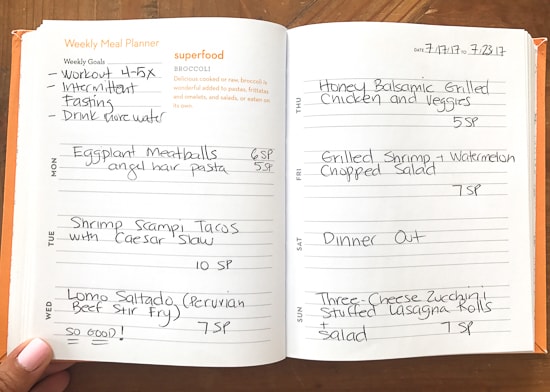 Weekly Meal Planner
Weekly Goals
- Workout 4-5x
- Intermittent
Fasting
- Drink more water
superfood
BROCCOLI
Delicious cooked or raw, broccoli is
wonderful added to pastas, frittatas
and omelets, and salads, or eaten on
its own.
MON
Eggplant Meatballs 6 SP
angel hair pasta 5 SP
TUE
Shrimp Scampi Tacos
with Caesar Slaw
10 SP
WED
Lomo Saltado (Peruvian
Beef Stir Fry)
7 SP
SO GOOD!
DATE 7/17/17 TO 7/23/17
THU
Honey Balsamic Grilled
Chicken and Veggies
5 SP
FRI
Grilled Shrimp + Watermelon
Chopped Salad
7 SP
SAT
Dinner Out
SUN
Three-Cheese Zucchini
Stuffed Lasagna Rolls
+
Salad 7 SP